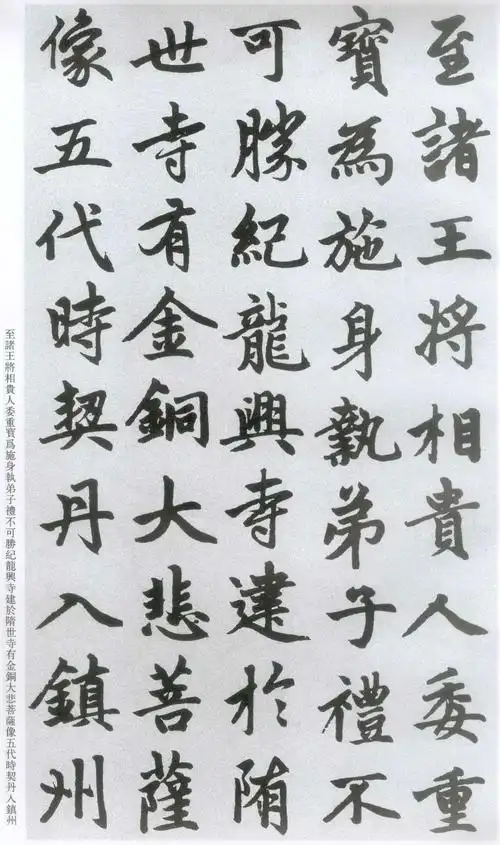 至諸王將相貴人委重
寶為施身執弟子禮不
可勝紀龍興寺建於隋
世寺有金銅大悲菩薩
像五代時契丹入鎮州
至諸王將相貴人委重寶爲施身執弟子禮不可勝紀龍興寺建於隋世寺有金銅大悲菩薩像五代時契丹人鎮州